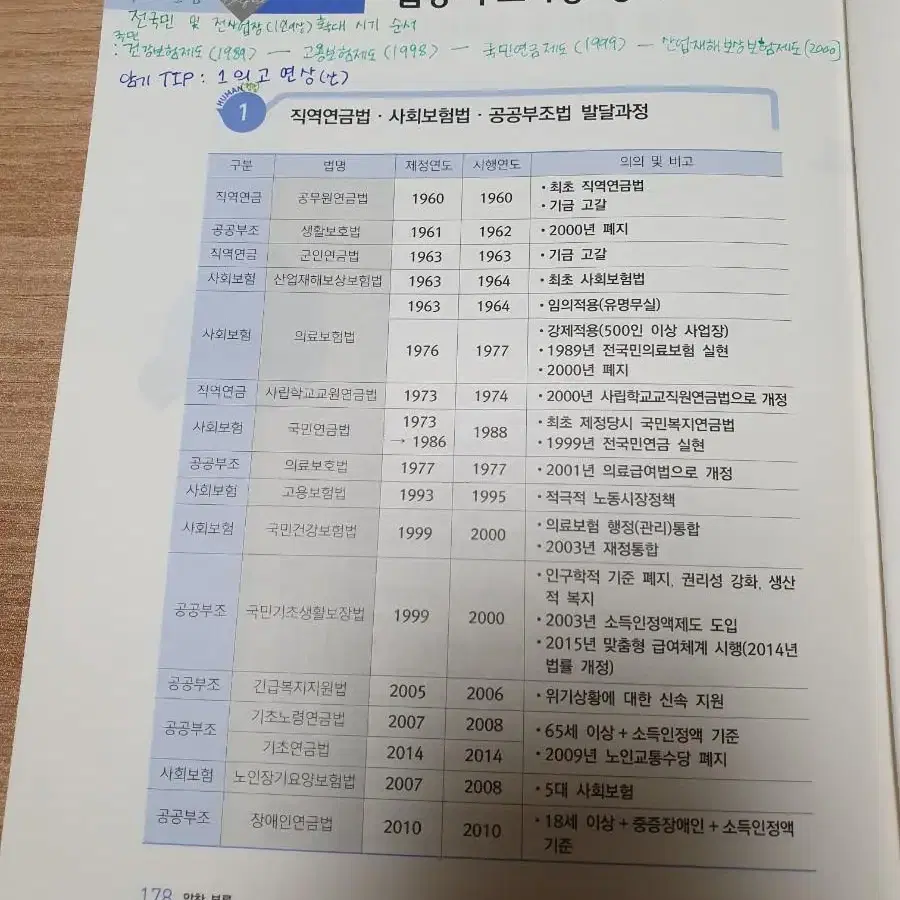 전국민 및 전사업장(1인이상) 확대 시기 순서
국민
: 건강보험제도(1989) — 고용보험제도(1998) — 국민연금제도(1999) — 산업재해보상보험제도(2000)
암기 TIP : 1의고연상(산)
HUMAN
1 직역연금법 · 사회보험법 · 공공부조법 발달과정
구분 법명 제정연도 시행연도 의의 및 비고
직역연금 공무원연금법 1960 1960 • 최초 직역연금법
• 기금 고갈
공공부조 생활보호법 1961 1962 • 2000년 폐지
직역연금 군인연금법 1963 1963 • 기금 고갈
사회보험 산업재해보상보험법 1963 1964 • 최초 사회보험법
사회보험 의료보험법 1963 1964 • 임의적용(유명무실)
1976 1977 • 강제적용(500인 이상 사업장)
• 1989년 전국민의료보험 실현
• 2000년 폐지
직역연금 사립학교교원연금법 1973 1974 • 2000년 사립학교교직원연금법으로 개정
사회보험 국민연금법 1973 → 1986 1988 • 최초 제정당시 국민복지연금법
• 1999년 전국민연금 실현
공공부조 의료보호법 1977 1977 • 2001년 의료급여법으로 개정
사회보험 고용보험법 1993 1995 • 적극적 노동시장정책
사회보험 국민건강보험법 1999 2000 • 의료보험 행정(관리)통합
• 2003년 재정통합
공공부조 국민기초생활보장법 1999 2000 • 인구학적 기준 폐지, 권리성 강화, 생산
적 복지
• 2003년 소득인정액제도 도입
• 2015년 맞춤형 급여체계 시행(2014년
법률 개정)
공공부조 긴급복지지원법 2005 2006 • 위기상황에 대한 신속 지원
공공부조 기초노령연금법 2007 2008 • 65세 이상 + 소득인정액 기준
기초연금법 2014 2014 • 2009년 노인교통수당 폐지
사회보험 노인장기요양보험법 2007 2008 • 5대 사회보험
공공부조 장애인연금법 2010 2010 • 18세 이상 + 중증장애인 + 소득인정액
기준
178